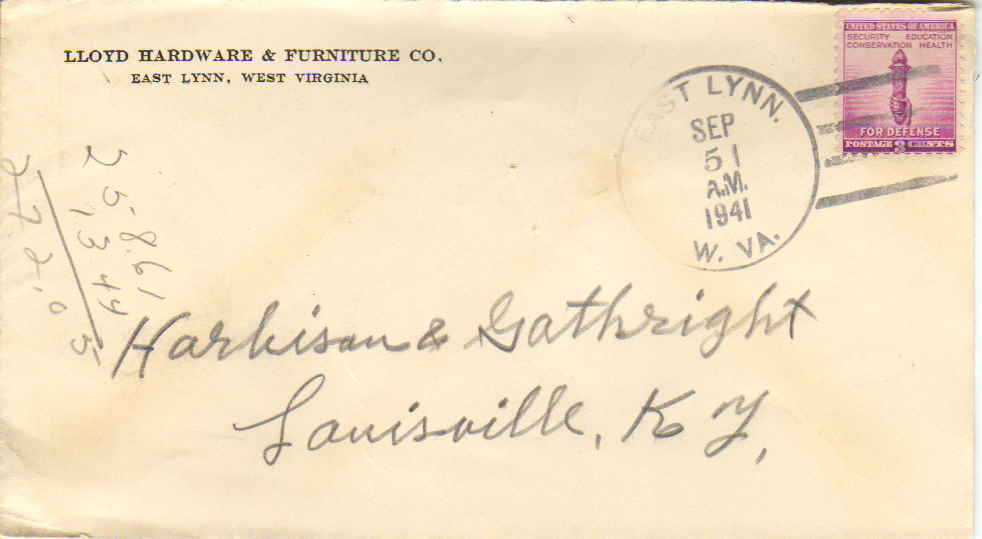 LLOYD HARDWARE & FURNITURE CO.
EAST LYNN, WEST VIRGINIA
EAST LYNN.
SEP
5 1
A.M.
1941
W. VA.
UNITED STATES OF AMERICA
SECURITY EDUCATION
CONSERVATION HEALTH
FOR DEFENSE
POSTAGE 3 CENTS
Harbison & Gathright
Louisville, Ky,
25 8.61
13 44
272.05